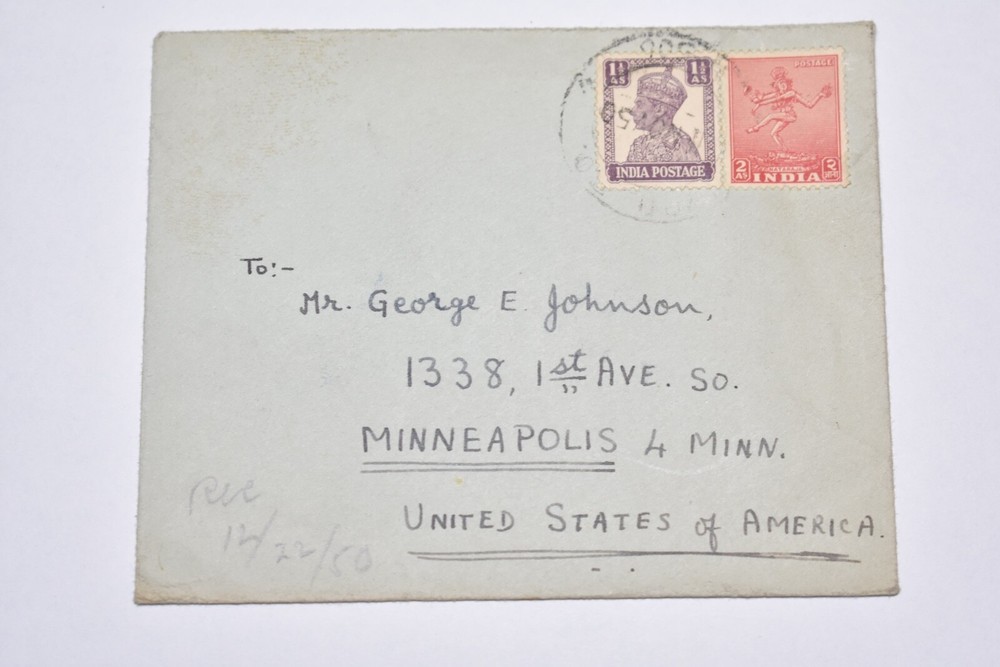 1½ AS 1½ AS
INDIA POSTAGE
POSTAGE
NATARAJA
2 AS २ आना
INDIA
To:-
Mr. George E. Johnson,
1338, 1st AVE. SO.
MINNEAPOLIS 4 MINN.
UNITED STATES of AMERICA.
Rec
12/22/50